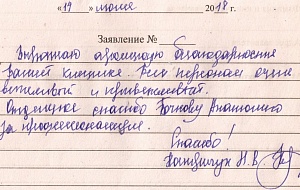 «19» июня 2018 г.
Заявление №
Выражаю огромную благодарность
Вашей клинике. Весь персонал очень
вежливый и приветливый.
Отдельное спасибо Бочкову Анатолию
за профессионализм.
Спасибо!
Н.В.